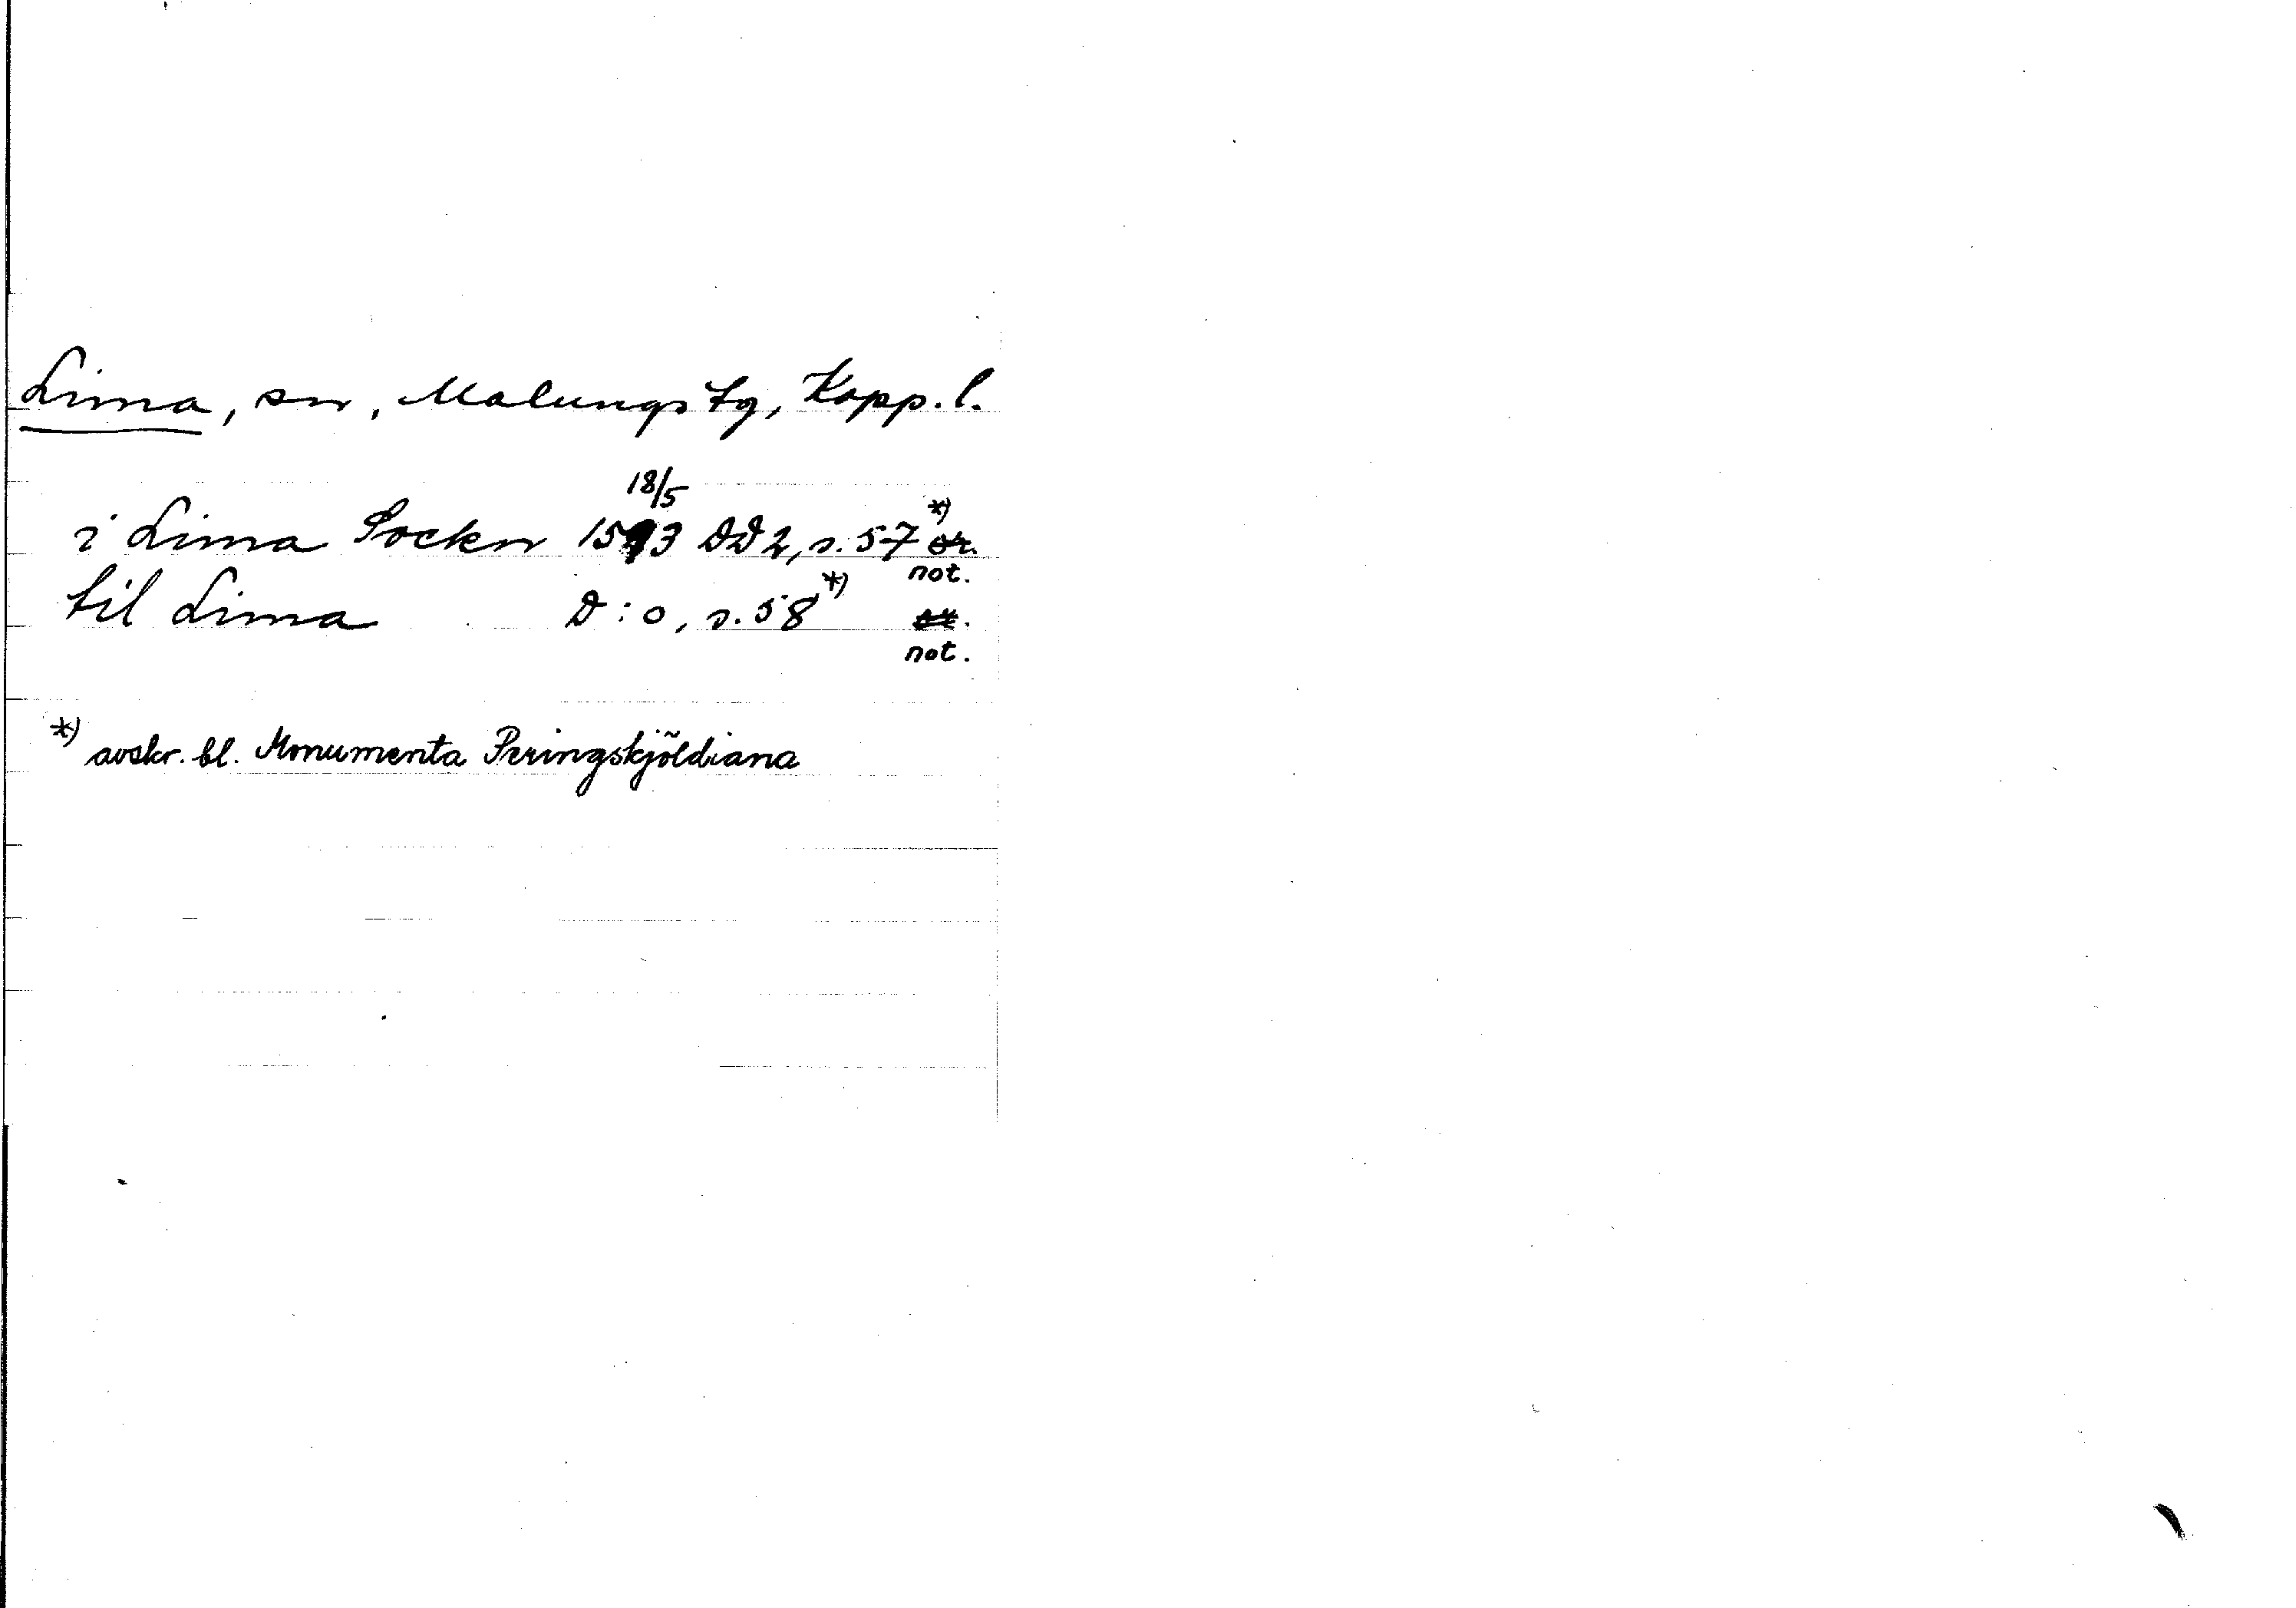 Lima, sn, Malungs tg, Kopp. l.
18/5
i Lima Sockn 1593 DD 2, s. 57 *) or.
not.
til Lima D:o, s. 58 *) or.
not.
*) avskr. bl. Monumenta Peringskjöldiana